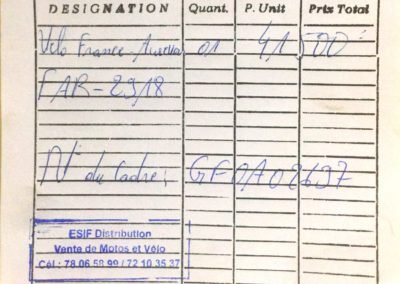 DESIGNATION Quant. P. Unit Prix Total
Velo France 01 41 500
FAR-2318
N° du Cadre: GF0A02637
ESIF Distribution
Vente de Motos et Vélo
Cél : 78 06 58 99 / 72 10 35 37